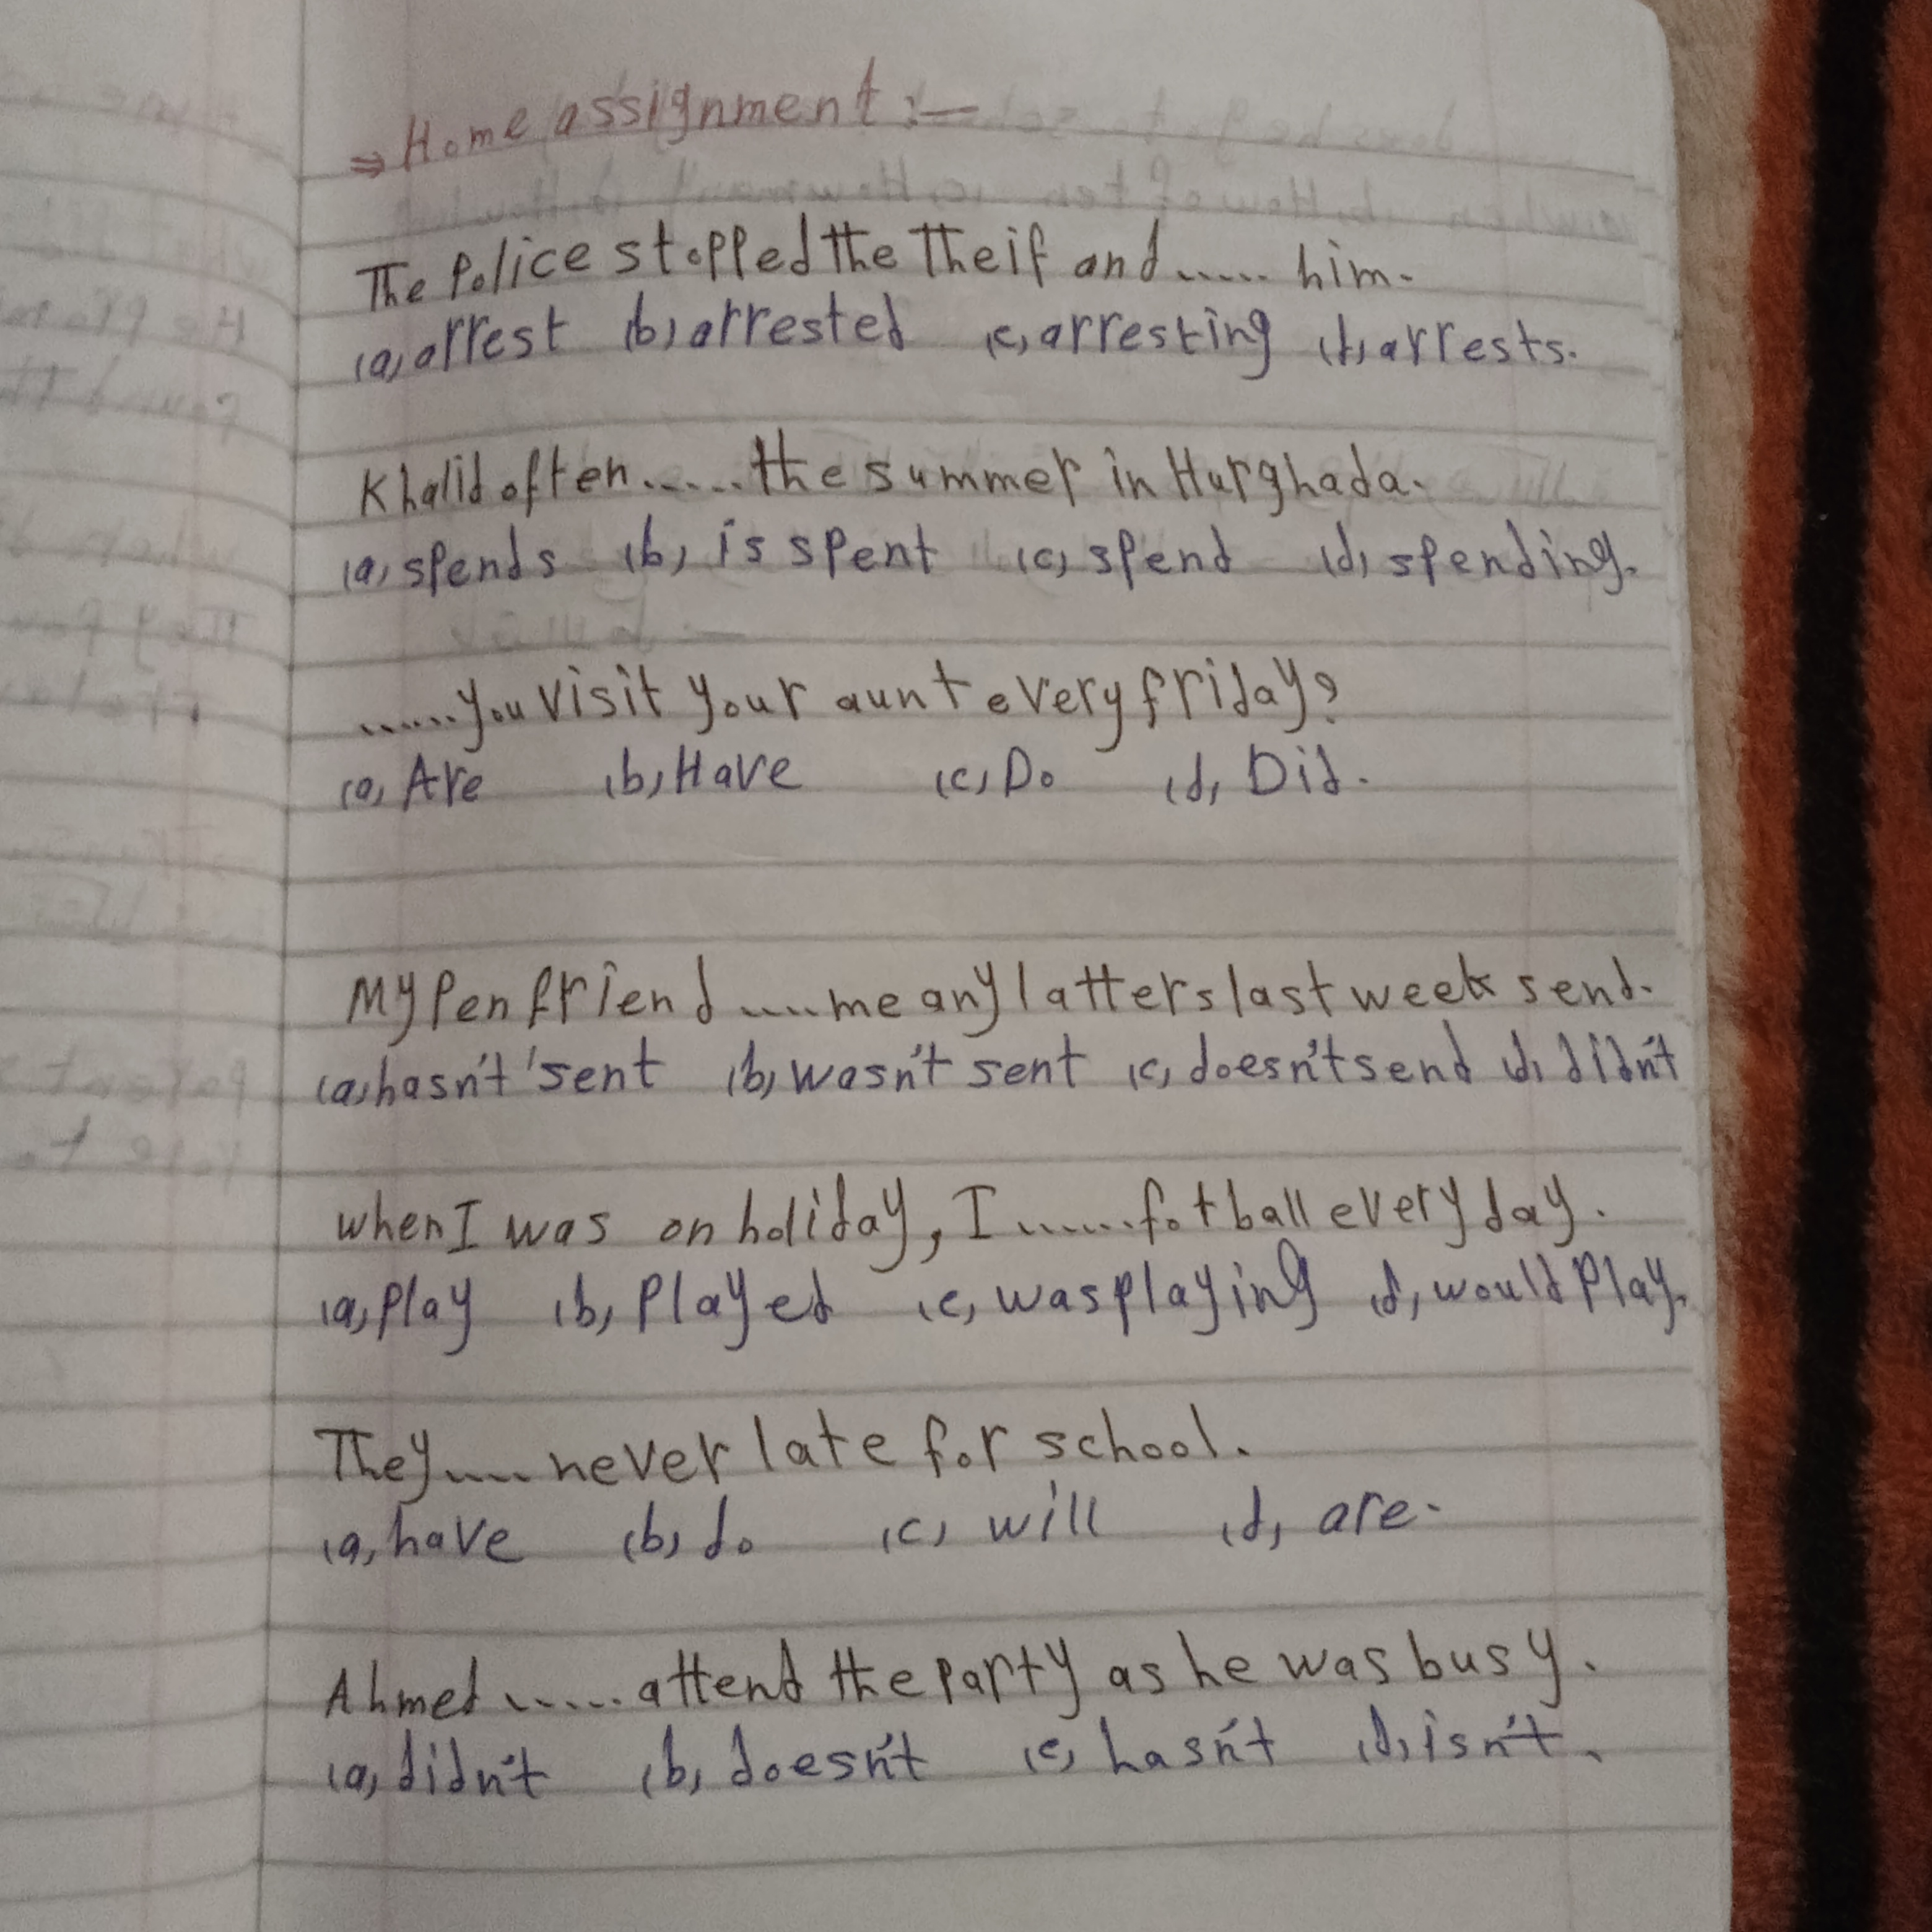 ⇒ Home assignment :-
The Police stopped the Theif and ..... him.
(a) arrest (b) arrested (c) arresting (d) arrests.
Khalid often ..... the summer in Hurghada.
(a) spends (b) is spent (c) spend (d) spending.
...... you visit your aunt every friday?
(a) Are (b) Have (c) Do (d) Did.
My Pen friend ..... me any latters last week send.
(a) hasn't sent (b) wasn't sent (c) doesn't send (d) didn't
when I was on holiday, I ...... fotball every day.
(a) play (b) played (c) was playing (d) would play.
They ..... never late for school.
(a) have (b) do (c) will (d) are.
Ahmed ...... attend the party as he was busy.
(a) didn't (b) doesn't (c) hasn't (d) isn't.